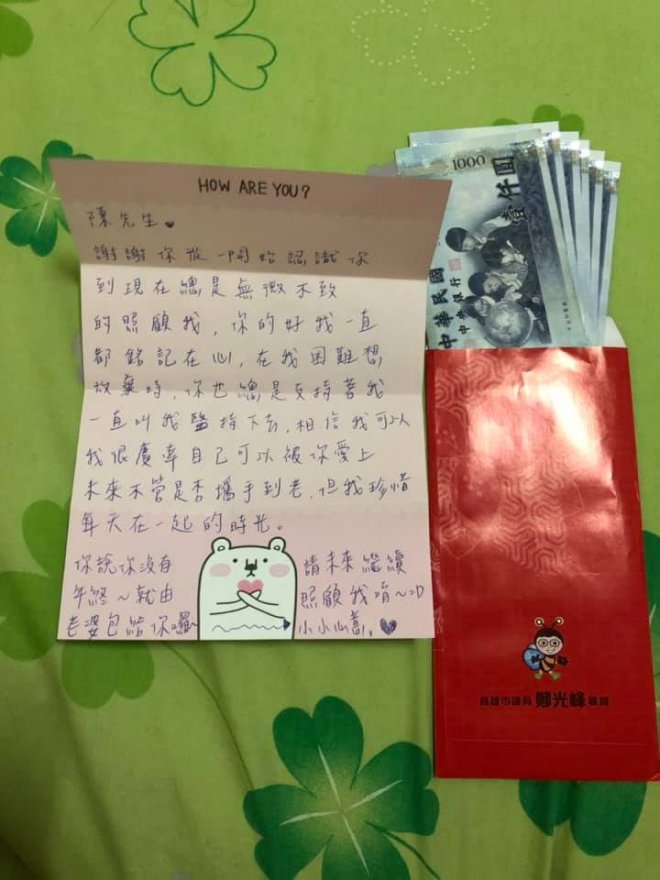 HOW ARE YOU?
陳先生
謝謝你從一開始認識你
到現在總是無微不致
的照顧我,你的好我一直
都銘記在心,在我困難想
放棄時,你也總是支持著我
一直叫我堅持下去,相信我可以
我很慶幸自己可以被你愛上
未來不管是否攜手到老,但我珍惜
每天在一起的時光。
你說你沒有
年終~就由
老婆包給你囉~
請未來繼續
照顧我唷~=D
小小心意。
1000
壹仟圓
中華民國
中央銀行
高雄市議員 鄭光峰